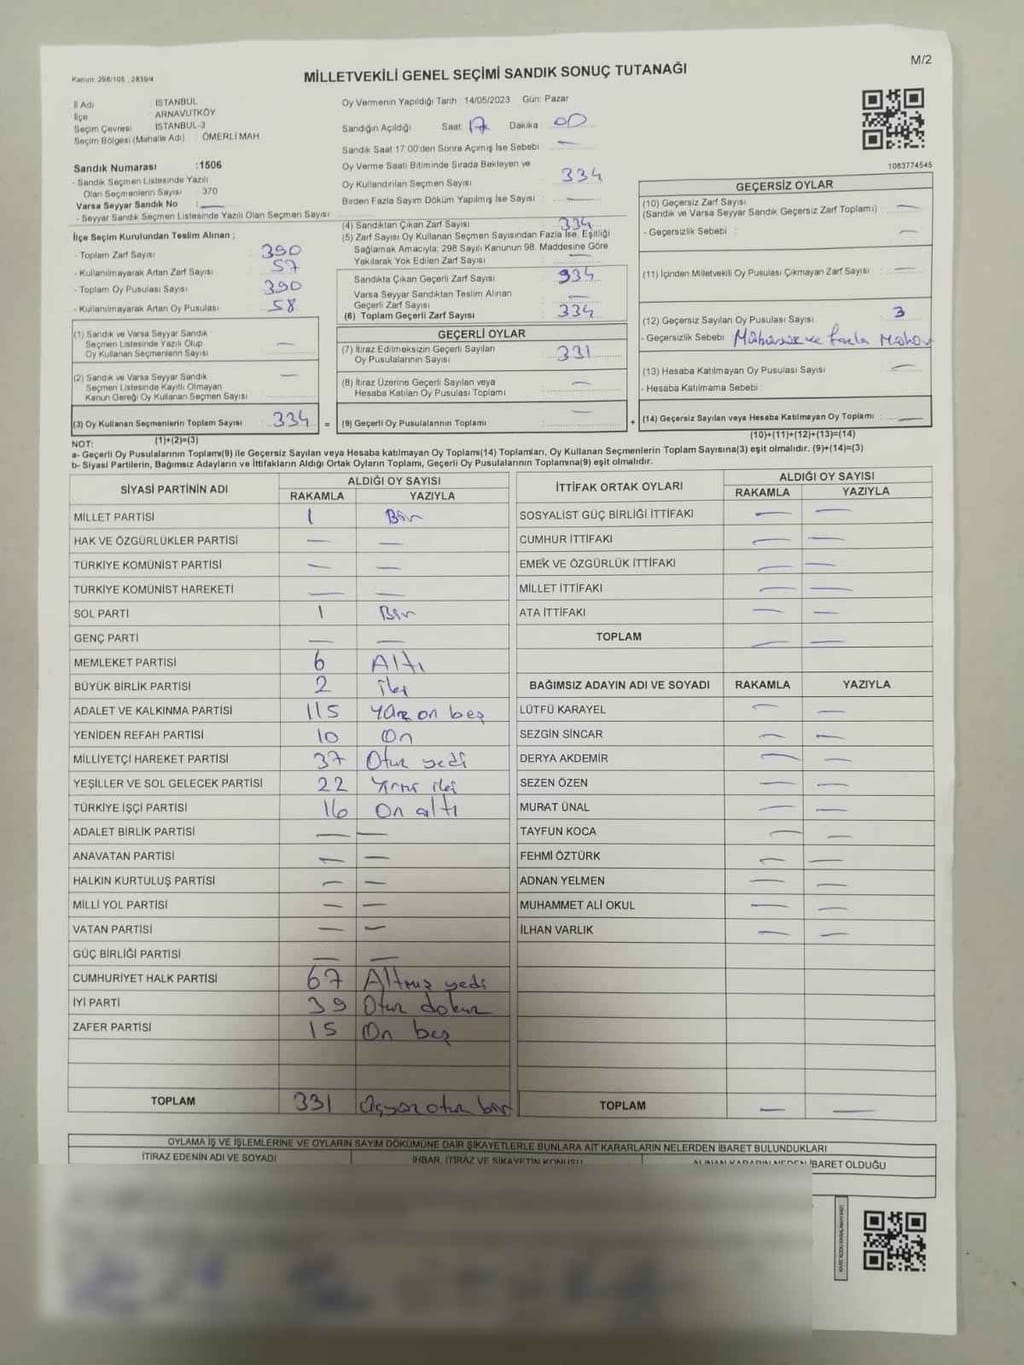 Kanun: 298/105 , 2839/4
MİLLETVEKİLİ GENEL SEÇİMİ SANDIK SONUÇ TUTANAĞI
M/2
İl Adı İSTANBUL
İlçe ARNAVUTKÖY
Seçim Çevresi İSTANBUL-3
Seçim Bölgesi (Mahalle Adı) ÖMERLİ MAH
Oy Vermenin Yapıldığı Tarih :14/05/2023 Gün: Pazar
Sandığın Açıldığı Saat: 17 Dakika 00
Sandık Saat 17:00'den Sonra Açımış İse Sebebi —
Oy Verme Saati Bitiminde Sırada Bekleyen ve
Oy Kullandırılan Seçmen Sayısı 334
Birden Fazla Sayım Döküm Yapılmış İse Sayısı
1083774545
Sandık Numarası :1506
- Sandık Seçmen Listesinde Yazılı
Olan Seçmenlerin Sayısı 370
Varsa Seyyar Sandık No : —
- Seyyar Sandık Seçmen Listesinde Yazılı Olan Seçmen Sayısı
İlçe Seçim Kurulundan Teslim Alınan ;
- Toplam Zarf Sayısı 390
- Kullanılmayarak Artan Zarf Sayısı 57
- Toplam Oy Pusulası Sayısı 390
- Kullanılmayarak Artan Oy Pusulası 58
(1) Sandık ve Varsa Seyyar Sandık
Seçmen Listesinde Yazılı Olup
Oy Kullanan Seçmenlerin Sayısı —
(2) Sandık ve Varsa Seyyar Sandık
Seçmen Listesinde Kayıtlı Olmayan
Kanun Gereği Oy Kullanan Seçmen Sayısı —
(3) Oy Kullanan Seçmenlerin Toplam Sayısı 334
(1)+(2)=(3)
(4) Sandıktan Çıkan Zarf Sayısı 334
(5) Zarf Sayısı Oy Kullanan Seçmen Sayısından Fazla İse, Eşitliği
Sağlamak Amacıyla; 298 Sayılı Kanunun 98. Maddesine Göre
Yakılarak Yok Edilen Zarf Sayısı —
Sandıkta Çıkan Geçerli Zarf Sayısı 334
Varsa Seyyar Sandıktan Teslim Alınan
Geçerli Zarf Sayısı —
(6) Toplam Geçerli Zarf Sayısı 334
GEÇERLİ OYLAR
(7) İtiraz Edilmeksizin Geçerli Sayılan
Oy Pusulalarının Sayısı 331
(8) İtiraz Üzerine Geçerli Sayılan veya
Hesaba Katılan Oy Pusulası Toplamı —
= (9) Geçerli Oy Pusulalarının Toplamı —
GEÇERSİZ OYLAR
(10) Geçersiz Zarf Sayısı
(Sandık ve Varsa Seyyar Sandık Geçersiz Zarf Toplamı) —
- Geçersizlik Sebebi : —
(11) İçinden Milletvekili Oy Pusulası Çıkmayan Zarf Sayısı —
(12) Geçersiz Sayılan Oy Pusulası Sayısı 3
- Geçersizlik Sebebi : Mühürsüz ve fazla
(13) Hesaba Katılmayan Oy Pusulası Sayısı —
- Hesaba Katılmama Sebebi
+ (14) Geçersiz Sayılan veya Hesaba Katılmayan Oy Toplamı —
(10)+(11)+(12)+(13)=(14)
NOT:
a- Geçerli Oy Pusulalarının Toplamı(9) ile Geçersiz Sayılan veya Hesaba katılmayan Oy Toplamı(14) Toplamları, Oy Kullanan Seçmenlerin Toplam Sayısına(3) eşit olmalıdır. (9)+(14)=(3)
b- Siyasi Partilerin, Bağımsız Adayların ve İttifakların Aldığı Ortak Oyların Toplamı, Geçerli Oy Pusulalarının Toplamına(9) eşit olmalıdır.
SİYASİ PARTİNİN ADI ALDIĞI OY SAYISI
RAKAMLA YAZIYLA
MİLLET PARTİSİ 1 Bir
HAK VE ÖZGÜRLÜKLER PARTİSİ — —
TÜRKİYE KOMÜNİST PARTİSİ — —
TÜRKİYE KOMÜNİST HAREKETİ — —
SOL PARTİ 1 Bir
GENÇ PARTİ — —
MEMLEKET PARTİSİ 6 Altı
BÜYÜK BİRLİK PARTİSİ 2 iki
ADALET VE KALKINMA PARTİSİ 115 Yüz on beş
YENİDEN REFAH PARTİSİ 10 On
MİLLİYETÇİ HAREKET PARTİSİ 37 Otuz yedi
YEŞİLLER VE SOL GELECEK PARTİSİ 22 Yirmi iki
TÜRKİYE İŞÇİ PARTİSİ 16 On altı
ADALET BİRLİK PARTİSİ — —
ANAVATAN PARTİSİ — —
HALKIN KURTULUŞ PARTİSİ — —
MİLLİ YOL PARTİSİ — —
VATAN PARTİSİ — —
GÜÇ BİRLİĞİ PARTİSİ — —
CUMHURİYET HALK PARTİSİ 67 Altmış yedi
İYİ PARTİ 39 Otuz dokuz
ZAFER PARTİSİ 15 On beş
TOPLAM 331 Üçyüz otuz bir
İTTİFAK ORTAK OYLARI ALDIĞI OY SAYISI
RAKAMLA YAZIYLA
SOSYALİST GÜÇ BİRLİĞİ İTTİFAKI — —
CUMHUR İTTİFAKI — —
EMEK VE ÖZGÜRLÜK İTTİFAKI — —
MİLLET İTTİFAKI — —
ATA İTTİFAKI — —
TOPLAM — —
BAĞIMSIZ ADAYIN ADI VE SOYADI RAKAMLA YAZIYLA
LÜTFÜ KARAYEL — —
SEZGİN SİNCAR — —
DERYA AKDEMİR — —
SEZEN ÖZEN — —
MURAT ÜNAL — —
TAYFUN KOCA — —
FEHMİ ÖZTÜRK — —
ADNAN YELMEN — —
MUHAMMET ALİ OKUL — —
İLHAN VARLIK — —
TOPLAM — —
OYLAMA İŞ VE İŞLEMLERİNE VE OYLARIN SAYIM DÖKÜMÜNE DAİR ŞİKAYETLERLE BUNLARA AİT KARARLARIN NELERDEN İBARET BULUNDUKLARI
İTİRAZ EDENİN ADI VE SOYADI İHBAR, İTİRAZ VE ŞİKAYETİN KONUSU ALINAN KARARIN NEDEN İBARET OLDUĞU